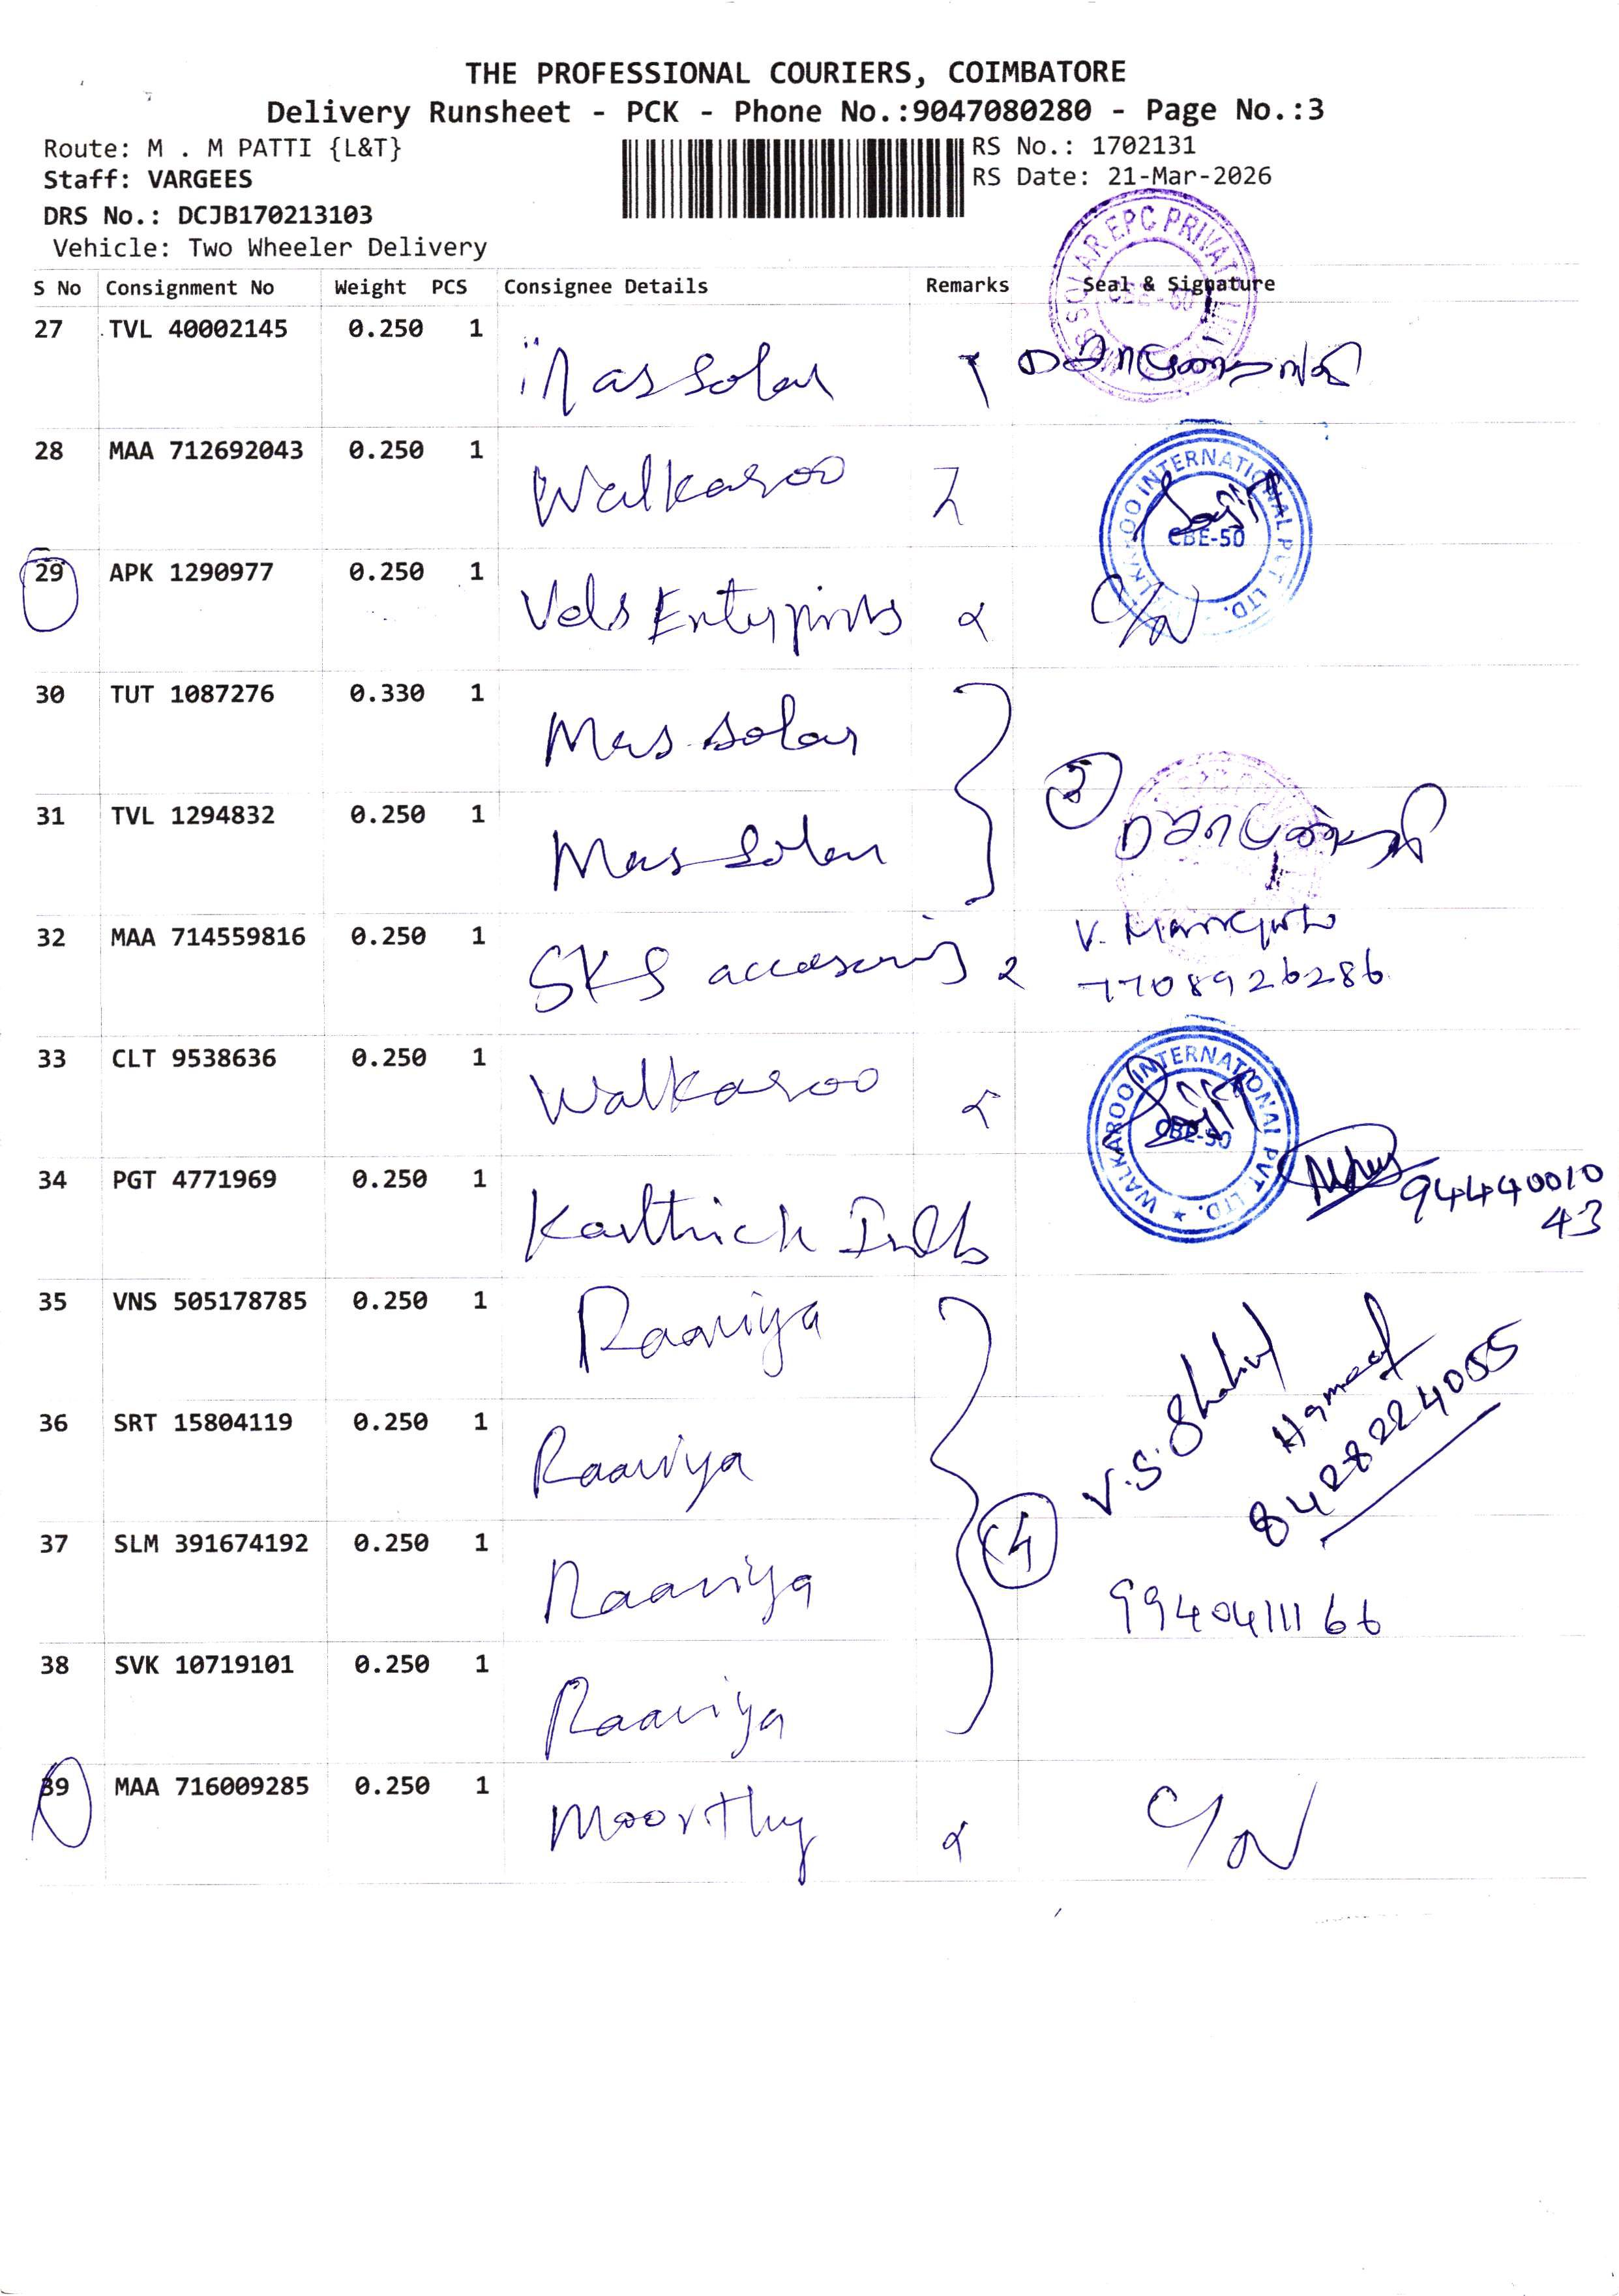 THE PROFESSIONAL COURIERS, COIMBATORE
Delivery Runsheet - PCK - Phone No.:9047080280 - Page No.:3
Route: M . M PATTI {L&T}
RS No.: 1702131
Staff: VARGEES
RS Date: 21-Mar-2026
DRS No.: DCJB170213103
Vehicle: Two Wheeler Delivery
S No Consignment No Weight PCS Consignee Details Remarks Seal & Signature
27 TVL 40002145 0.250 1
Mas Solar
28 MAA 712692043 0.250 1
Walkaroo
WALKAROO INTERNATIONAL PVT LTD.
CBE-50
29 APK 1290977 0.250 1
Vels Enterprises C/N
30 TUT 1087276 0.330 1
Mas Solar
31 TVL 1294832 0.250 1
Mas Solar
32 MAA 714559816 0.250 1
SKS
7708926286
33 CLT 9538636 0.250 1
Walkaroo
WALKAROO INTERNATIONAL PVT LTD.
CBE-50
34 PGT 4771969 0.250 1
Karthick
94440010
43
35 VNS 505178785 0.250 1
Raaviya
V.S. Shahul
Hameed
8428224055
36 SRT 15804119 0.250 1
Raaviya
4
37 SLM 391674192 0.250 1
Raaviya
9940411166
38 SVK 10719101 0.250 1
Raaviya
39 MAA 716009285 0.250 1
Moorthy C/N